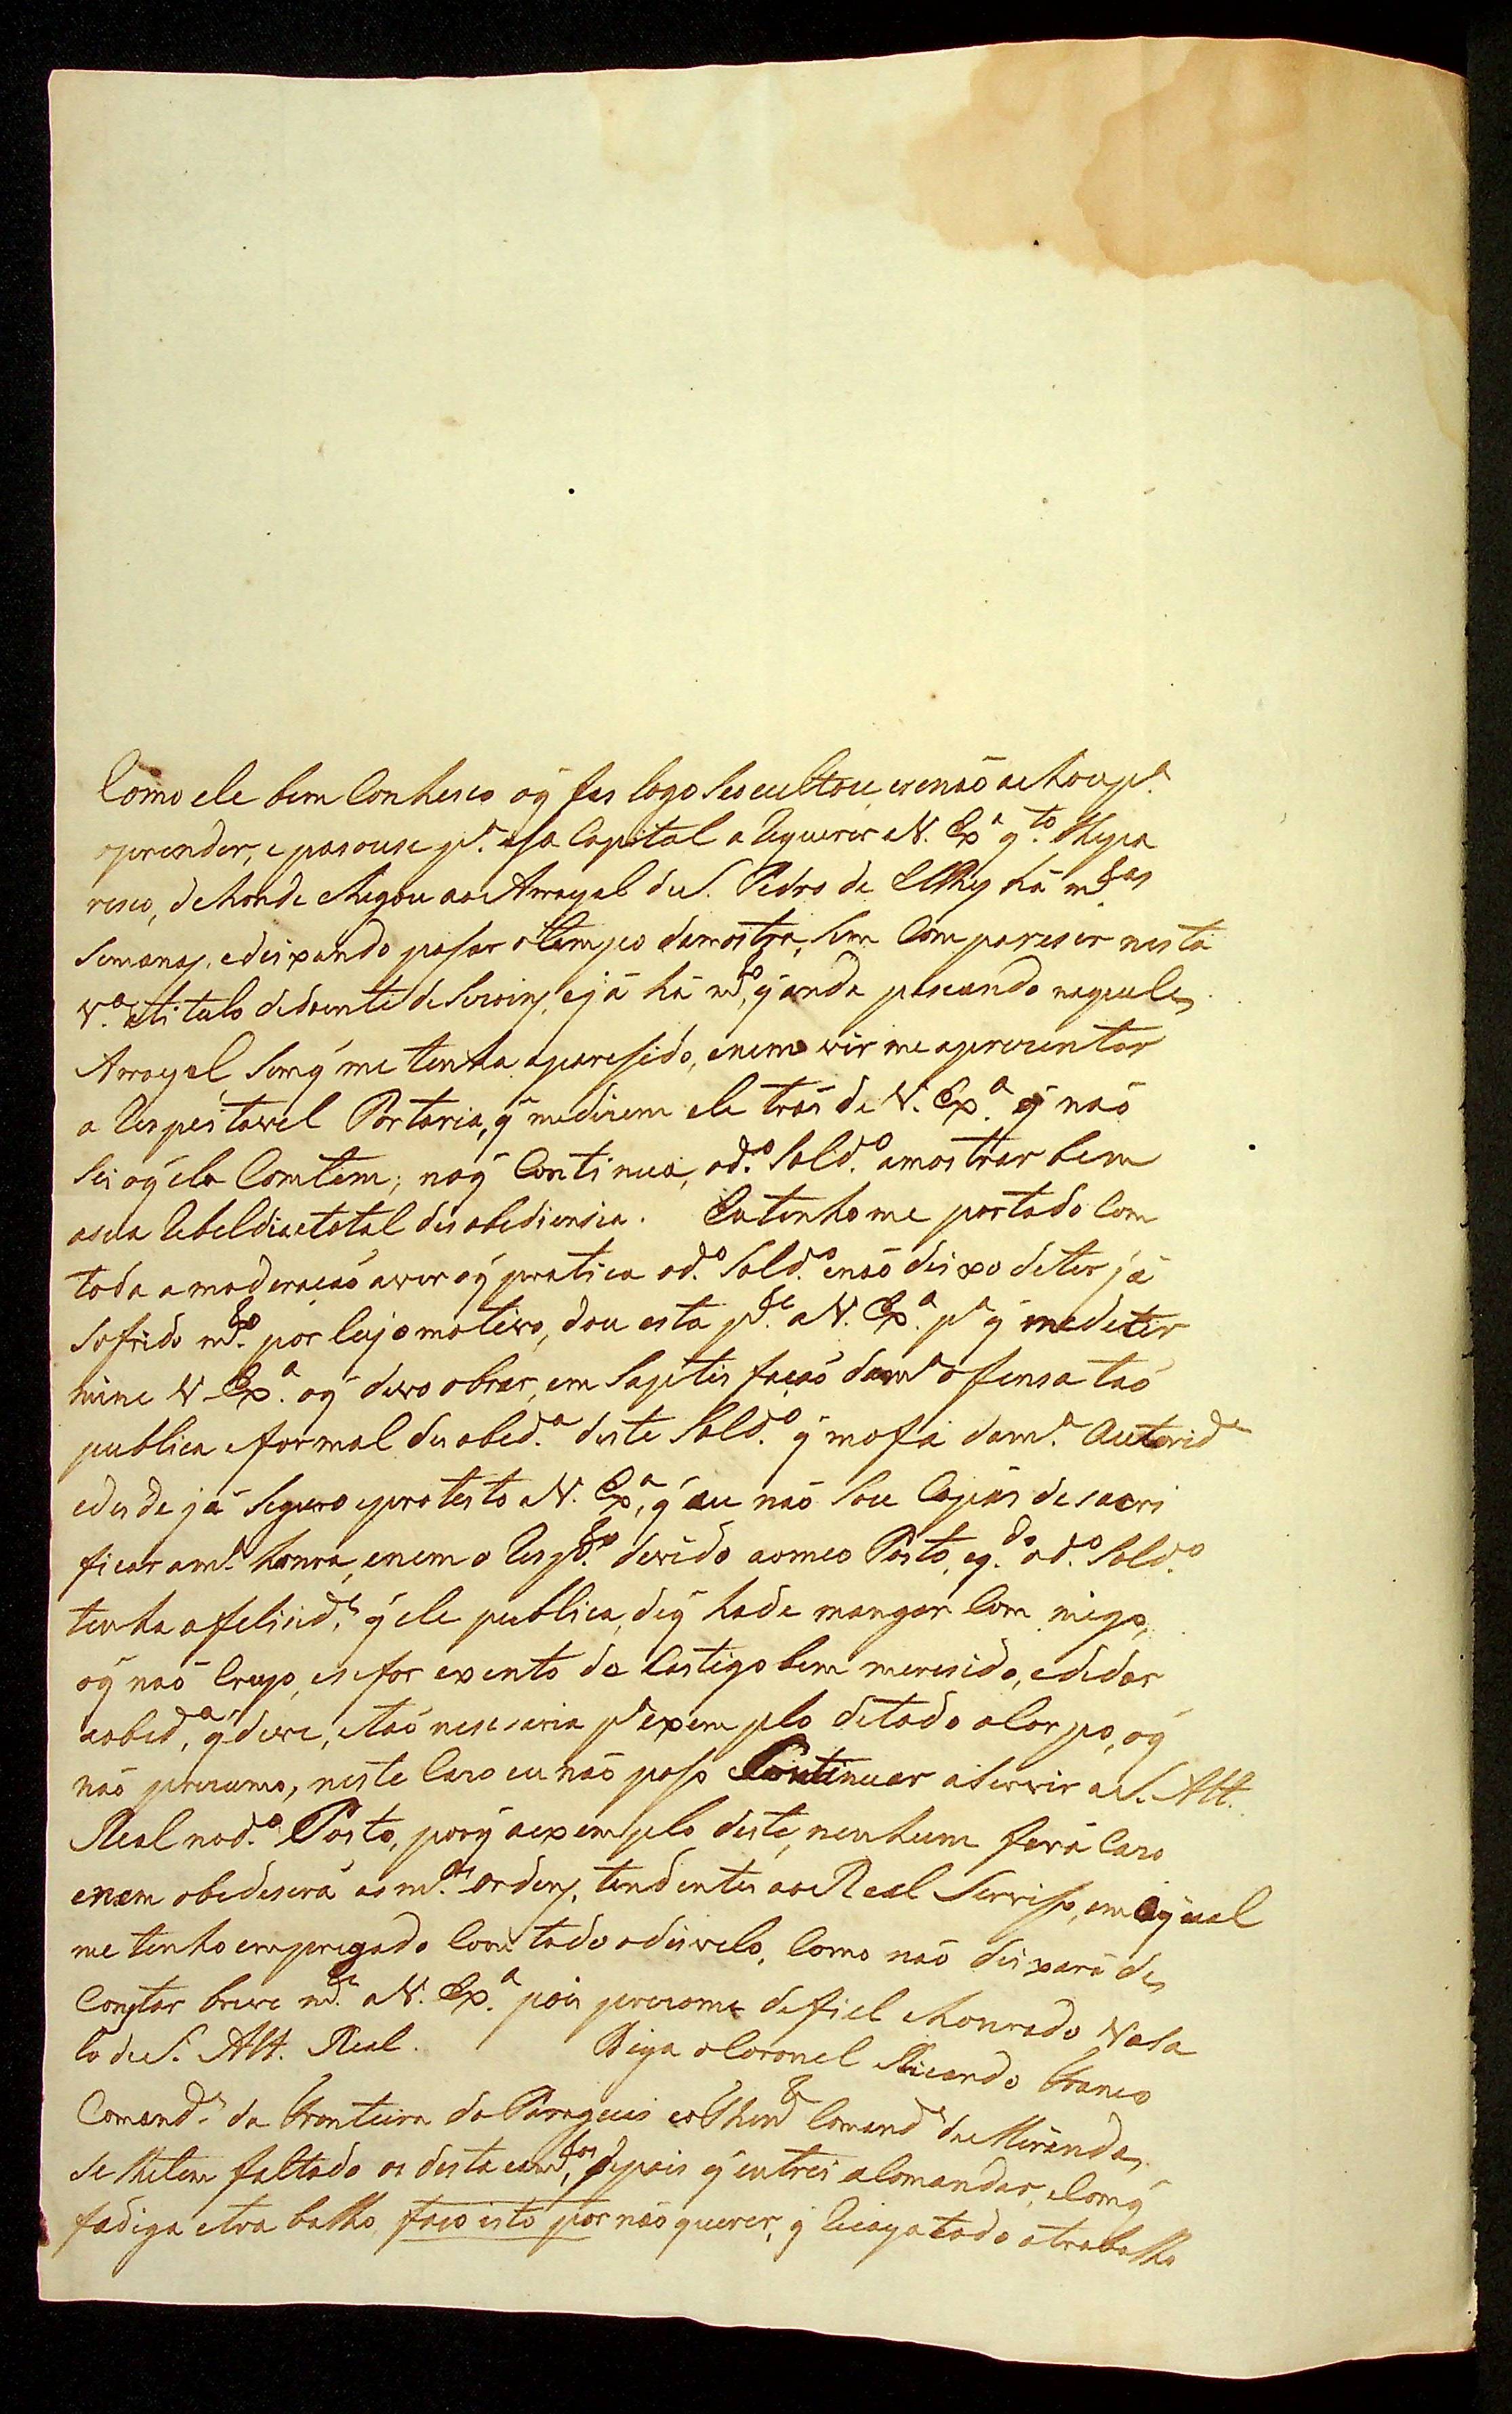 Como ele bem Conheseo oq̃ fes logo Seocultou, esenaõ achou p.ª
oprender, epasouse p.ª esa Capital a Requerer a V. Ex.ª q.to lhepa
reseo, dehonde chegou ao Arrayal de S. Pedro de ElRey há m.tas
Semanas, edeixando pasar otempo damostra, Sem Compareser nesta
V.ª atitulo dedoente deServins, ejá há m.to, q̃ anda paseando naquele
Arrayal, Semq̃ me tenha aparesido, enem vir me aprezentar
a Respeitavel Portaria, q̃ medizem ele trás de V. Ex.ª q̃ naõ
Sei oq̃ ela Comtem; noq̃ Continua, od.º Sold.º amostrar bem
asua Rebeldia etotal desobediensia. Eu tenhome portado Com
toda a moderacaõ aver oq̃ pratica od.º Sold.º enaõ deixo deter já
Sofrido m.to por Cujo motivo, dou esta p.te a V. Ex.ª p.ª q̃ medeter
mine V. Ex.ª oq̃ devo obrar, em Satisfacaõ dam.ª ofensa taõ
publica eformal desobed.ª deste Sold.º q̃ mofa dam.ª Autorid.e
edesde já Seguro eprotesto a V. Ex.ª, q̃ eu naõ Sou Capás desacri
ficar am.ª honra, enem o Resp.to devido aomeo Posto, eq.do od.º Sold.º
tenha afelisid.e, q̃ ele publica, deq̃ hade mangar Com migo,
oq̃ naõ Creyo, esefor exento do Castigo bem meresido, ededar
aobed.ª, q̃ deve, etaõ nesesaria p.ª exemplo detodo oCorpo, oq̃
naõ prezumo, neste Cazo eu naõ poso Continuar aServir aS. Alt.
Real nod.º Posto, porq̃ aexemplo deste, nenhum fará Cazo
enem obedeserá as m.as ordens, tendentes ao Real Serviso, em oqual
me tenho empregado Com todo odisvelo, Como naõ deixará de
Constar breve m.te a V. Ex.ª pois prezome defiel ehonrado Vasa
lo de S. Alt. Real. Diga oCoronel Ricardo Franco
Comand.e da Fronteira do Paraguai eo Then.te Comand.e de Miranda,
Se lhetem faltado os desta com.tos, depois q̃ entrei aComandar, eComq̃
fadiga etrabalho, faco isto por naõ querer, q̃ Recaya todo otrabalho